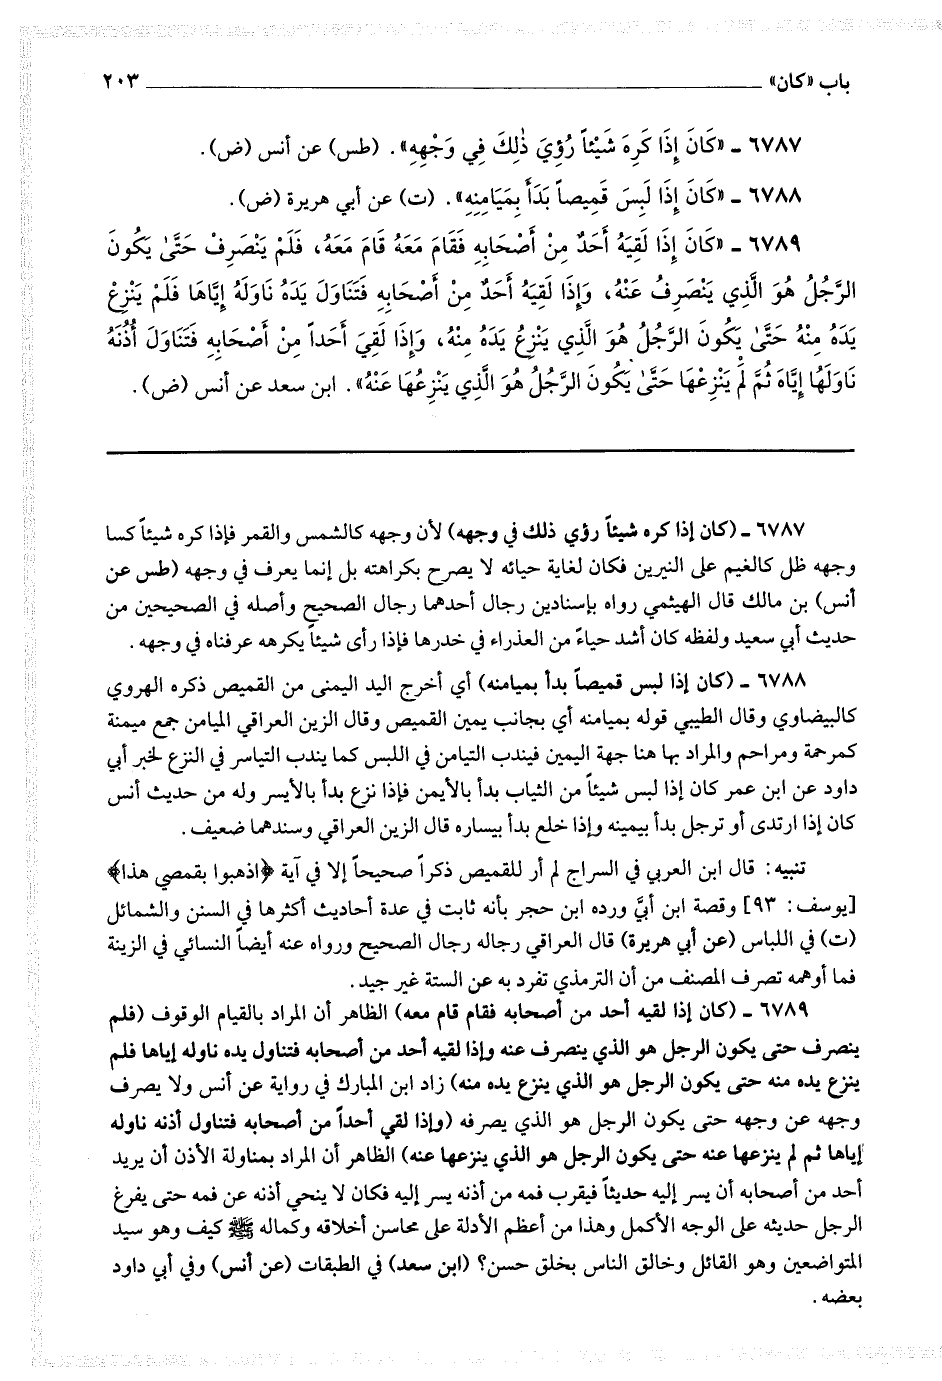 باب «كان» ٢٠٣
٦٧٨٧ - «كَانَ إِذَا كَرِهَ شَيْئاً رُؤِيَ ذٰلِكَ فِي وَجْهِهِ». (طس) عن أنس (ض).
٦٧٨٨ - «كَانَ إِذَا لَبِسَ قَمِيصاً بَدَأَ بِمَيَامِنِهِ». (ت) عن أبي هريرة (ض).
٦٧٨٩ - «كَانَ إِذَا لَقِيَهُ أَحَدٌ مِنْ أَصْحَابِهِ فَقَامَ مَعَهُ قَامَ مَعَهُ، فَلَمْ يَنْصَرِفْ حَتَّىٰ يَكُونَ
الرَّجُلُ هُوَ الَّذِي يَنْصَرِفُ عَنْهُ، وَإِذَا لَقِيَهُ أَحَدٌ مِنْ أَصْحَابِهِ فَتَنَاوَلَ يَدَهُ نَاوَلَهُ إِيَّاهَا فَلَمْ يَنْزِعْ
يَدَهُ مِنْهُ حَتَّىٰ يَكُونَ الرَّجُلُ هُوَ الَّذِي يَنْزِعُ يَدَهُ مِنْهُ، وَإِذَا لَقِيَ أَحَداً مِنْ أَصْحَابِهِ فَتَنَاوَلَ أُذُنَهُ
نَاوَلَهَا إِيَّاهُ ثُمَّ لَمْ يَنْزِعْهَا حَتَّىٰ يَكُونَ الرَّجُلُ هُوَ الَّذِي يَنْزِعُهَا عَنْهُ». ابن سعد عن أنس (ض).
٦٧٨٧ - (كان إذا كره شيئاً رؤي ذلك في وجهه) لأن وجهه كالشمس والقمر فإذا كره شيئاً كسا
وجهه ظل كالغيم على النيرين فكان لغاية حيائه لا يصرح بكراهته بل إنما يعرف في وجهه (طس عن
أنس) بن مالك قال الهيثمي رواه بإسنادين رجال أحدهما رجال الصحيح وأصله في الصحيحين من
حديث أبي سعيد ولفظه كان أشد حياءً من العذراء في خدرها فإذا رأى شيئاً يكرهه عرفناه في وجهه.
٦٧٨٨ - (كان إذا لبس قميصاً بدأ بميامنه) أي أخرج اليد اليمنى من القميص ذكره الهروي
كالبيضاوي وقال الطيبي قوله بميامنه أي بجانب يمين القميص وقال الزين العراقي الميامن جمع ميمنة
كمرحمة ومراحم والمراد بها هنا جهة اليمين فيندب التيامن في اللبس كما يندب التياسر في النزع لخبر أبي
داود عن ابن عمر كان إذا لبس شيئاً من الثياب بدأ بالأيمن فإذا نزع بدأ بالأيسر وله من حديث أنس
كان إذا ارتدى أو ترجل بدأ بيمينه وإذا خلع بدأ بيساره قال الزين العراقي وسندهما ضعيف.
تنبيه: قال ابن العربي في السراج لم أر للقميص ذكراً صحيحاً إلا في آية ﴿اذهبوا بقمصي هذا﴾
[يوسف: ٩٣] وقصة ابن أبيَّ ورده ابن حجر بأنه ثابت في عدة أحاديث أكثرها في السنن والشمائل
(ت) في اللباس (عن أبي هريرة) قال العراقي رجاله رجال الصحيح ورواه عنه أيضاً النسائي في الزينة
فما أوهمه تصرف المصنف من أن الترمذي تفرد به عن الستة غير جيد.
٦٧٨٩ - (كان إذا لقيه أحد من أصحابه فقام قام معه) الظاهر أن المراد بالقيام الوقوف (فلم
ينصرف حتى يكون الرجل هو الذي ينصرف عنه وإذا لقيه أحد من أصحابه فتناول يده ناوله إياها فلم
ينزع يده منه حتى يكون الرجل هو الذي ينزع يده منه) زاد ابن المبارك في رواية عن أنس ولا يصرف
وجهه عن وجهه حتى يكون الرجل هو الذي يصرفه (وإذا لقي أحداً من أصحابه فتناول أذنه ناوله
إياها ثم لم ينزعها عنه حتى يكون الرجل هو الذي ينزعها عنه) الظاهر أن المراد بمناولة الأذن أن يريد
أحد من أصحابه أن يسر إليه حديثاً فيقرب فمه من أذنه يسر إليه فكان لا ينحي أذنه عن فمه حتى يفرغ
الرجل حديثه على الوجه الأكمل وهذا من أعظم الأدلة على محاسن أخلاقه وكماله ﷺ كيف وهو سيد
المتواضعين وهو القائل وخالق الناس بخلق حسن؟ (ابن سعد) في الطبقات (عن أنس) وفي أبي داود
بعضه.